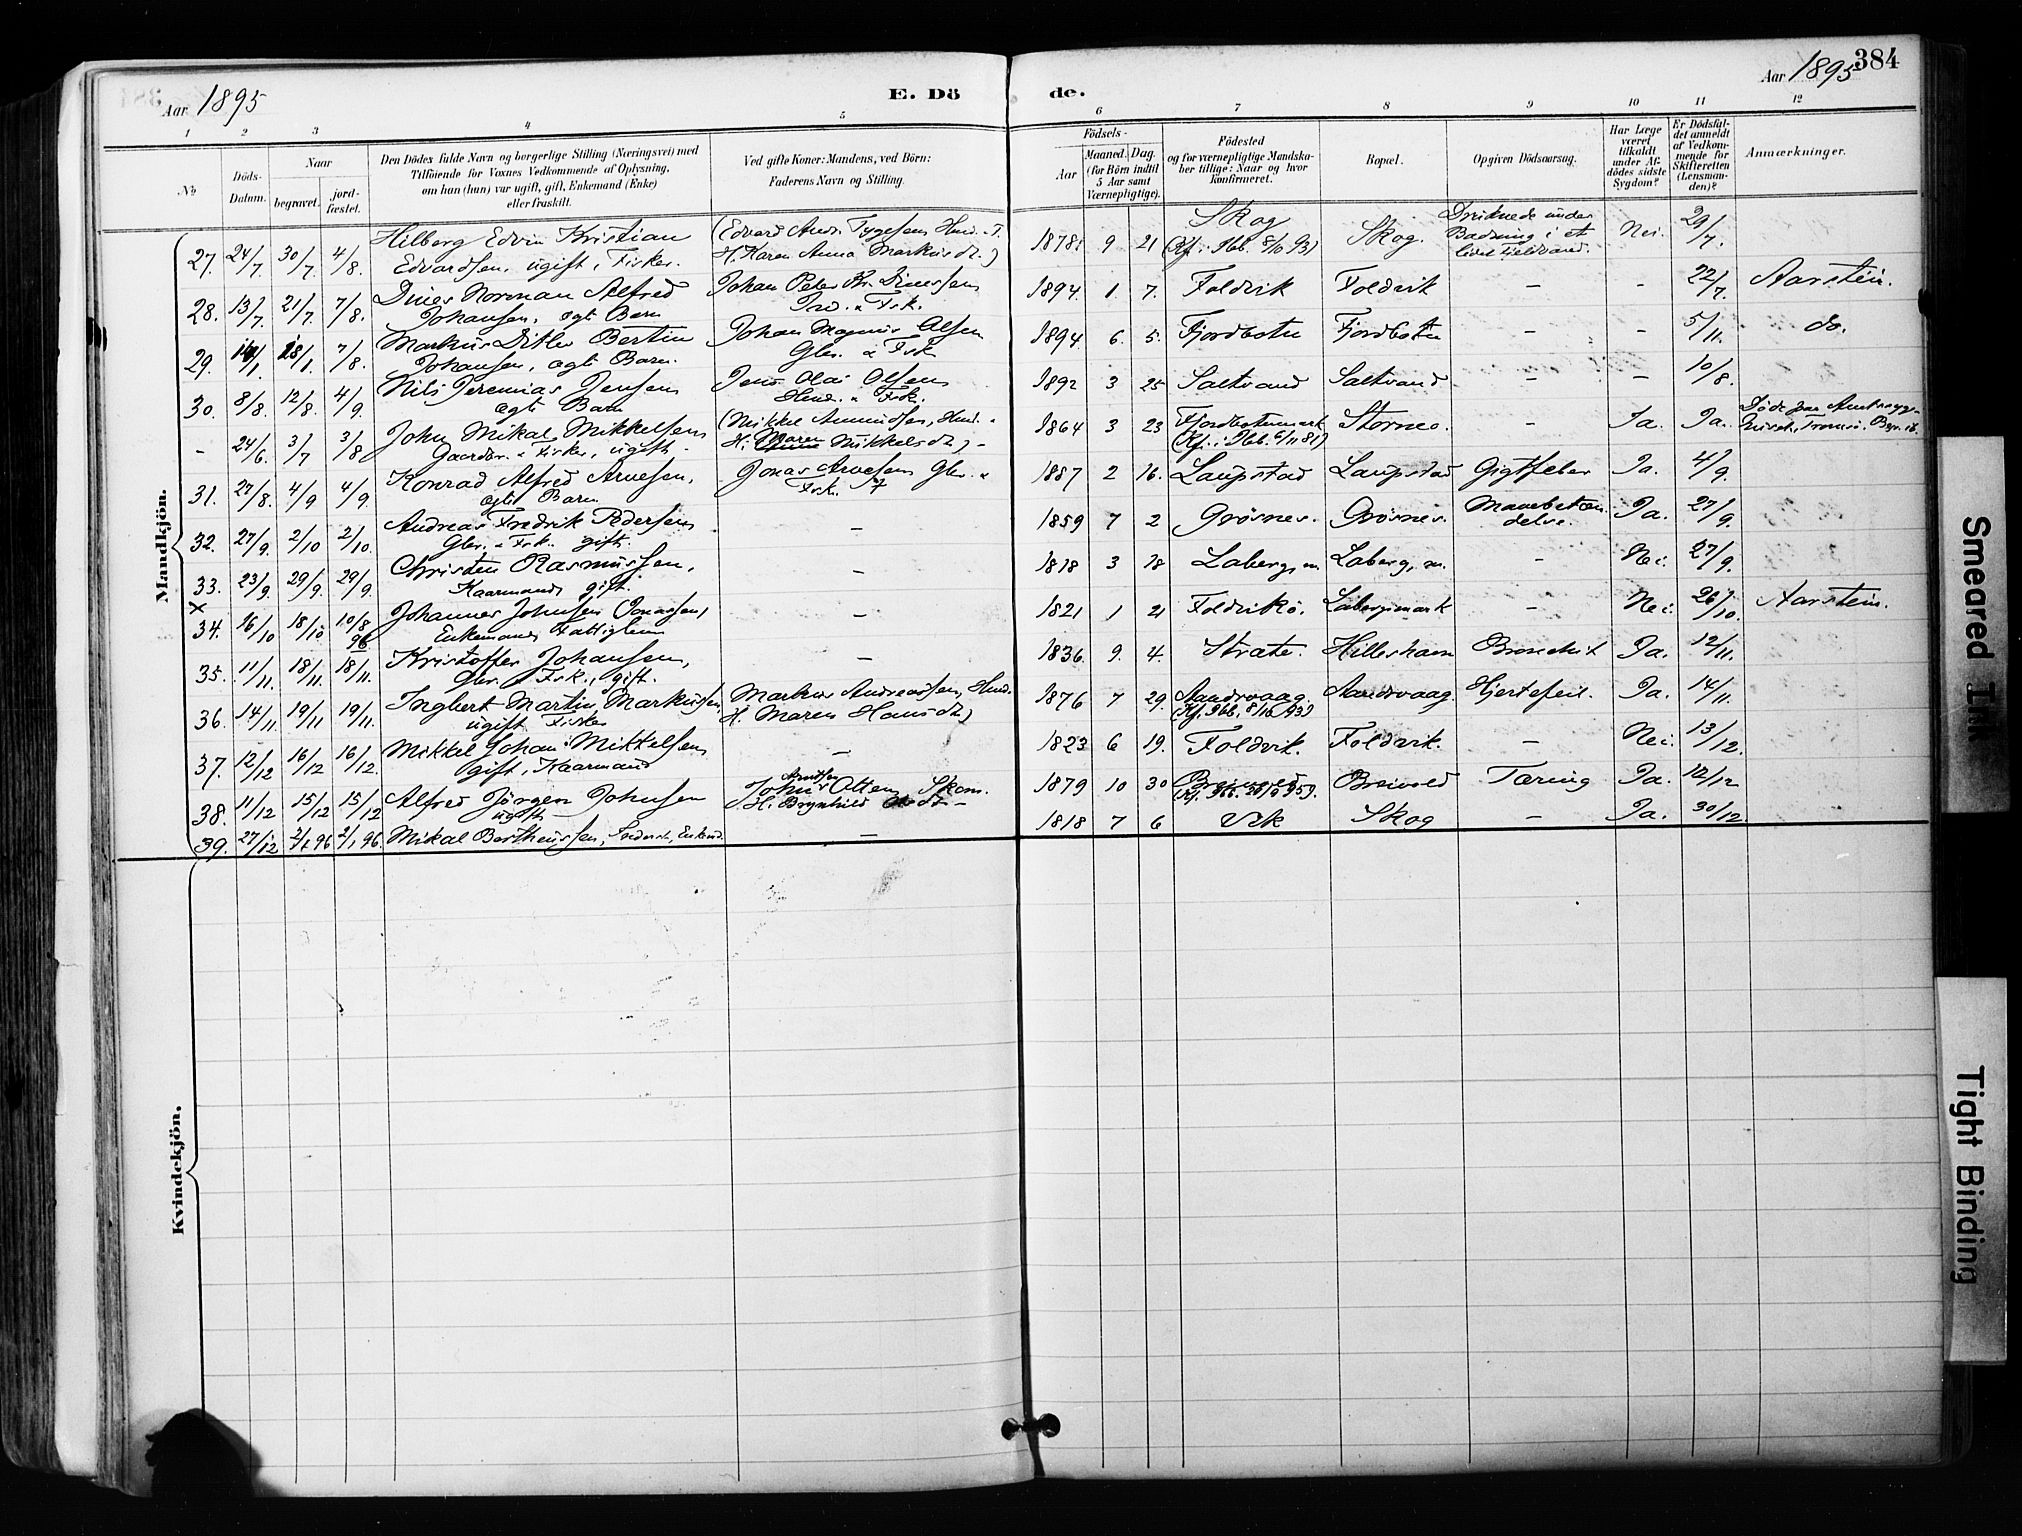 384
Aar 1895
E. Dö
de.
Aar 1895
1 2 3 4 5 6 7 8 9 10 11 12
No
Döds-
Datum.
Naar
begravet.
jord-
fæstet.
Den Dödes fulde Navn og borgerlige Stilling (Næringsvei) med
Tilföiende for Voxnes Vedkommende af Oplysning,
om han (hun) var ugift, gift, Enkemand (Enke)
eller fraskilt.
Ved gifte Koner: Mandens, ved Börn:
Faderens Navn og Stilling.
Födsels-
Aar
Maaned. Dag.
(for Börn indtil
5 Aar samt
Værnepligtige).
Födested
og for værnepligtige Mandska-
ber tillige: Naar og hvor
konfirmeret.
Bopæl.
Opgiven Dödsaarsag.
Har Læge
været
tilkaldt
under Af-
dödes sidste
Sygdom?
Er Dödsfal-
det anmeldt
af Vedkom-
mende for
Skifteretten
(Lensman-
den)?
Anmærkninger.
Mandkjön.
27. 24/7 30/7 4/8. Hilberg Edvin Kristian
Edvardsen, ugift, Fisker.
H. Karen Anna Markusd.)
1878 9 21 Skog
(Kf. i Ibb. 8/10 93)
Skog. Druknede under
Badning i et
lidet Fjeldvand.
Nei. 29/7.
28. 13/7. 21/7. 7/8. Dines Norman Alfred
Johansen, ægt Barn
Johan Peter Kr. Dinessen
Ind. & Fsk.
1894. 1 7. Foldvik Foldvik – – 22/7. Aarstein.
29. 14/1. 18/1. 7/8. Markus Ditlev Bertin
Johansen, ægt Barn.
Johan Magnus Olsen
Gbr. & Fsk
1894 6. 5. Fjordbotn Fjordbotn – – 5/11. do.
30. 8/8. 12/8. 4/9. Nils Jeremias Jensen
ægt Barn
Jens Olai Olsen
Hmd. & Fsk.
1892 3 25 Saltvand Saltvand – – 10/8.
– 24/6. 3/7 3/8 John Mikal Mikkelsen
Gaardbr. & Fisker, ugift.
H. Maren Mikkelsd.) –
1864 3 23 Fjordbotnmark
(Kf. i Ibb. 6/11 81)
Stornes. Ja. Ja. Döde paa Amtssyge-
31. 27/8. 4/9 4/9. Konrad Alfred Arnesen,
ægt Barn
Jonas Arnesen Gbr. &
Fsk.
1887 2 16. Laupstad Laupstad Gigtfeber Ja. 4/9.
32. 27/9. 2/10 2/10. Andreas Fredrik Pedersen
Gbr. & Fsk. gift.
–
1859 7 2 Grösnes. Grösnes. Mavebetæn-
delse.
Ja. 27/9.
33. 23/9. 29/9. 29/9. Christen Rasmussen,
Kaarmand, gift.
–
1818 3 18 Laberg, m. Laberg, m. – Nei. 27/9.
x
34. 16/10 18/10 10/8
96
Johannes Johnsen
Enkemand, Fattiglem
–
1821 1 21 Foldvikö. Labergsmark – Nei. 26/10. Aarstein.
35. 11/11. 18/11. 18/11. Kristoffer Johansen,
Gbr. & Fsk., gift.
–
1836. 9. 4. Strate. Hilleshamn Ja. 12/11.
36. 14/11. 19/11 19/11. Ingbert Martin Markussen,
ugift Fisker
Markus Andreassen, Hmd.
H. Maren Hansd.)
1876 7 29. Aandvaag
(Kf. Ibb. 8/10 93)
Aandvaag Hjertefeil. Ja. 14/11.
37. 12/12 16/12 16/12. Mikkel Johan Mikkelsen
gift, Kaarmand
–
1823 6 19. Foldvik. Foldvik. – Nei. 13/12.
38. 11/12 15/12 15/12 Alfred Jörgen Johnsen
ugift
1879 10 30 Breivold Breivold Tæring Ja. 12/12
39. 27/12 2/1 96 2/1 96. Mikal Bertheussen, Inderst, Enkmd.
–
1818 7 6 Vik Skog – Ja. 30/12
Kvindekjön.
Smeared Ink
Tight Binding